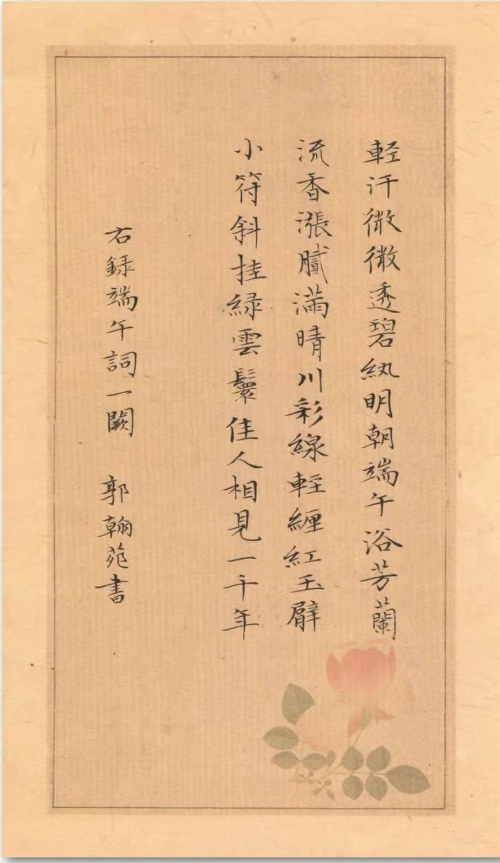 輕汗微微透碧紈明朝端午浴芳蘭
流香漲膩滿晴川彩線輕纏紅玉臂
小符斜挂綠雲鬟佳人相見一千年
右録端午詞一闕 郭翰苑書